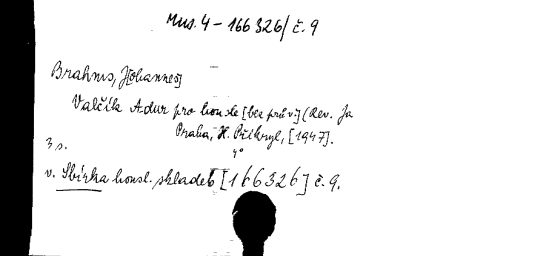 Mus. 4 - 166326/ č. 9
Brahms, J[ohannes]
Valčík A dur pro housle [bez prův.] (Rev. Ja
Praha, H. Přikryl, [1947].
3 s. 4°
v. Sbírka housl. skladeb [166326] č. 9.